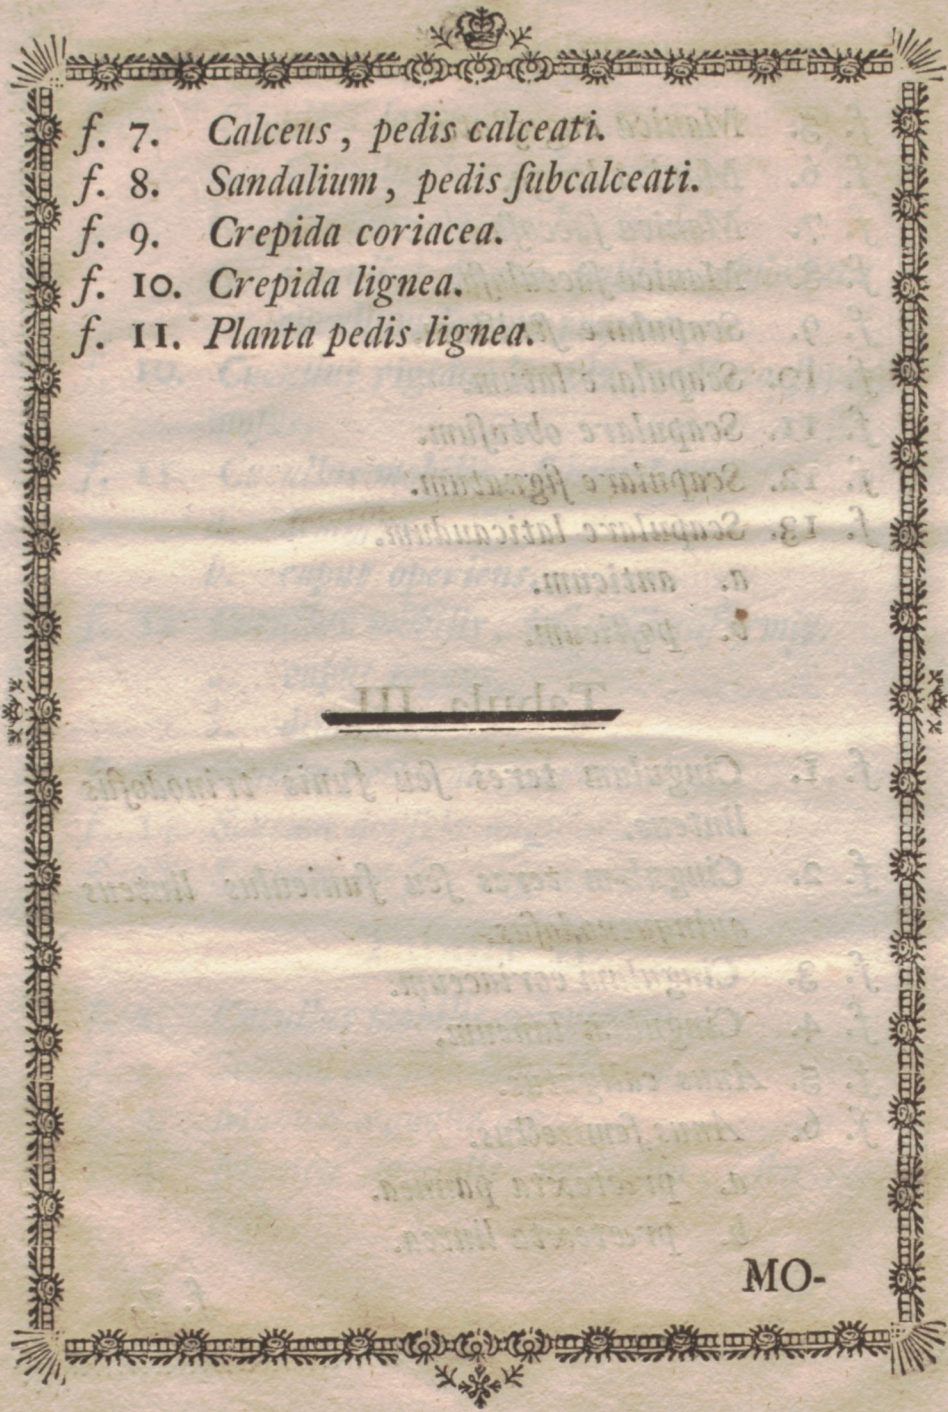 f. 7. Calceus, pedis calceati.
f. 8. Sandalium, pedis ſubcalceati.
f. 9. Crepida coriacea.
f. 10. Crepida lignea.
f. 11. Planta pedis lignea.
MO-